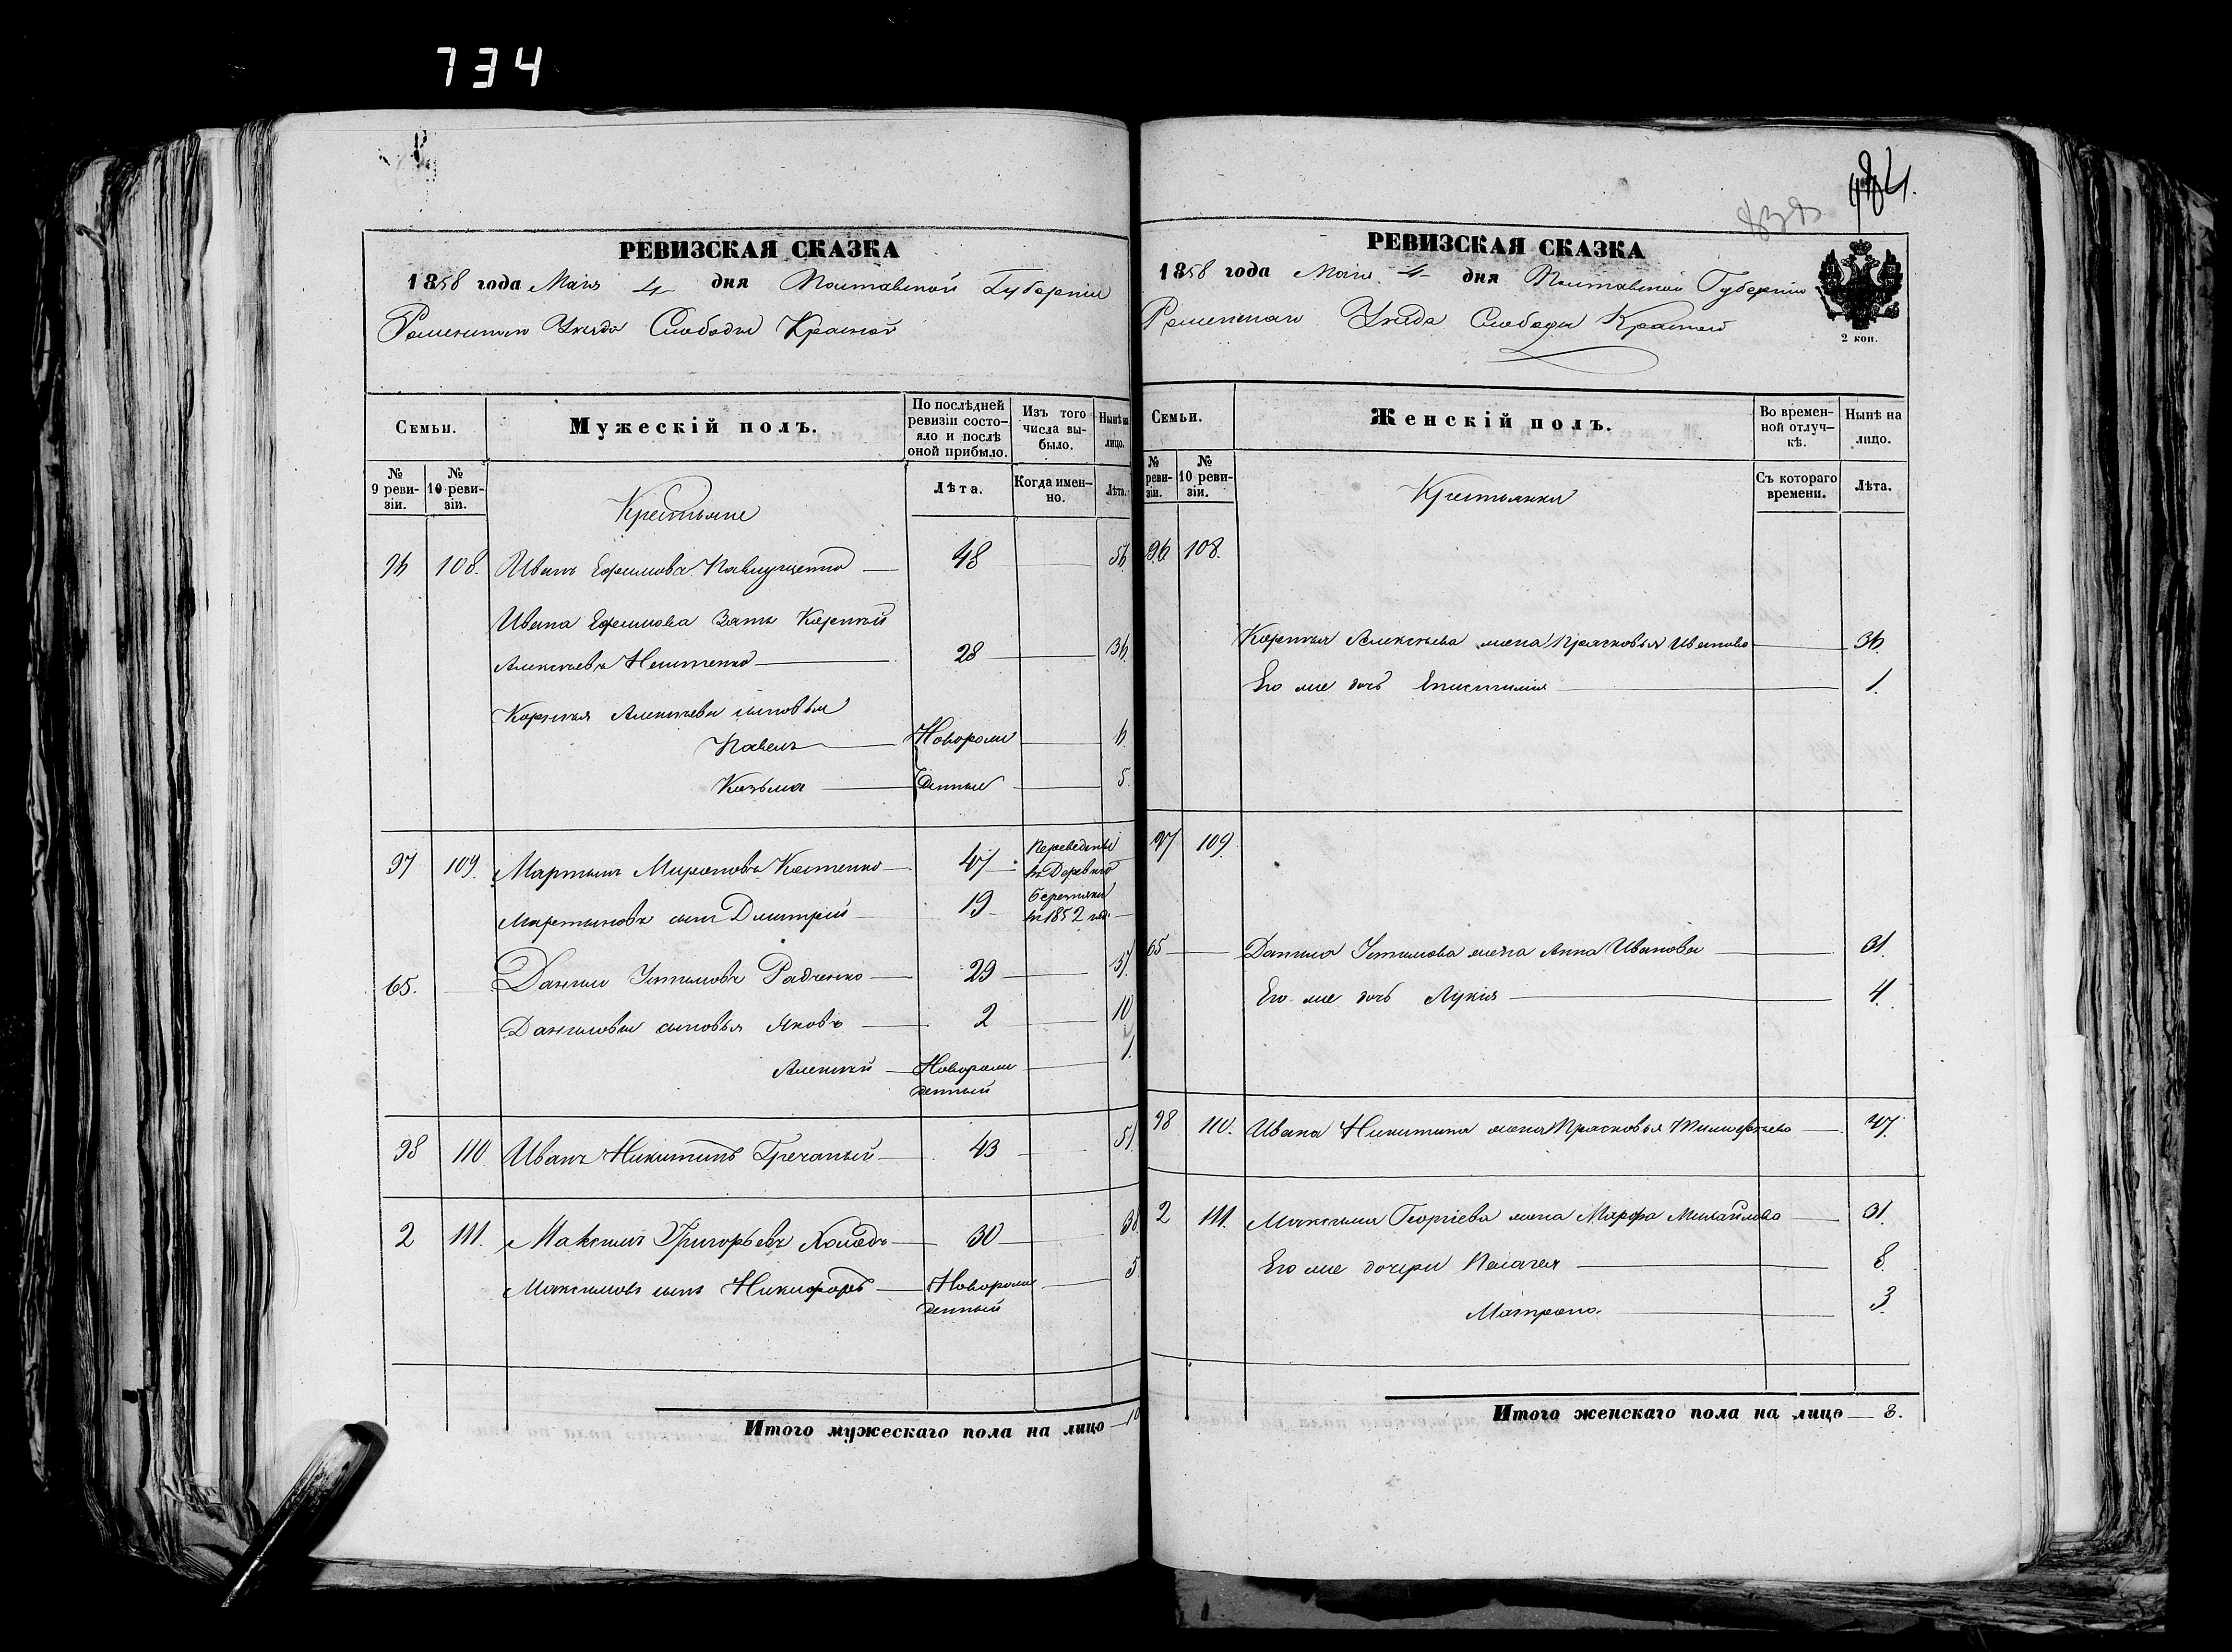 734
РЕВИЗСКАЯ СКАЗКА
1858 года Мая 4 дня Полтавской Губерніи
Роменскаго Уѣзда Слободы Красной
Семьи.
Мужескій полъ.
По послѣдней ревизіи состо-
яло и послѣ
оной прибыло.
Изъ того
числа вы-
было.
Нынѣ на
лицо.
№
9 реви-
зіи.
№
10 реви-
зіи.
Крестьяне
Лѣта.
Когда имен-
но.
Лѣта.
96 108. Иванъ Ефимовъ 48 56
Ивана Ефимова Зять Карпъ
Алексѣевъ 28 36
Алексѣевы сыновья
Павелъ Новорож 6
Козьма денные 5
97 109. Мартынъ Мироновъ Костенко 47 Переведены
въ Деревню
Мартыновъ сынъ Дмитрій 19
въ 1852 год.
65. Данило Устимовъ Радченко 29 37
Даниловы сыновья Яковъ 2 10
Алексѣй Новорож 1.
денный
98 110 Иванъ Никитинъ Гречаный 43 51
2 111. Максимъ Григорьевъ 30 38
Максимовъ сынъ Никифоръ Новорож 5
денный
Итого мужескаго пола на лицо 10
РЕВИЗСКАЯ СКАЗКА
1858 года Мая 4 дня Полтавской Губерніи
Роменскаго Уѣзда Слободы Красной
2 коп.
Семьи.
Женскій полъ.
Во времен-
ной отлуч-
кѣ.
Нынѣ на
лицо.
№
реви-
зіи.
№
10 реви-
зіи.
Крестьянки
Съ котораго
времени.
Лѣта.
96 108.
Алексѣева жена Прасковья Иванова 36
Его же дочь 1.
97 109
65 Данила Устимова жена Анна Иванова 31.
Его же дочь Лукія 4.
98 110. Ивана Никитина жена Прасковья Тимофѣева 47.
2 111. Максима Георгіева жена Марфа Михайлова 31.
Его же дочери Пелагея 8.
Матрона. 3.
Итого женскаго пола на лицо 8.